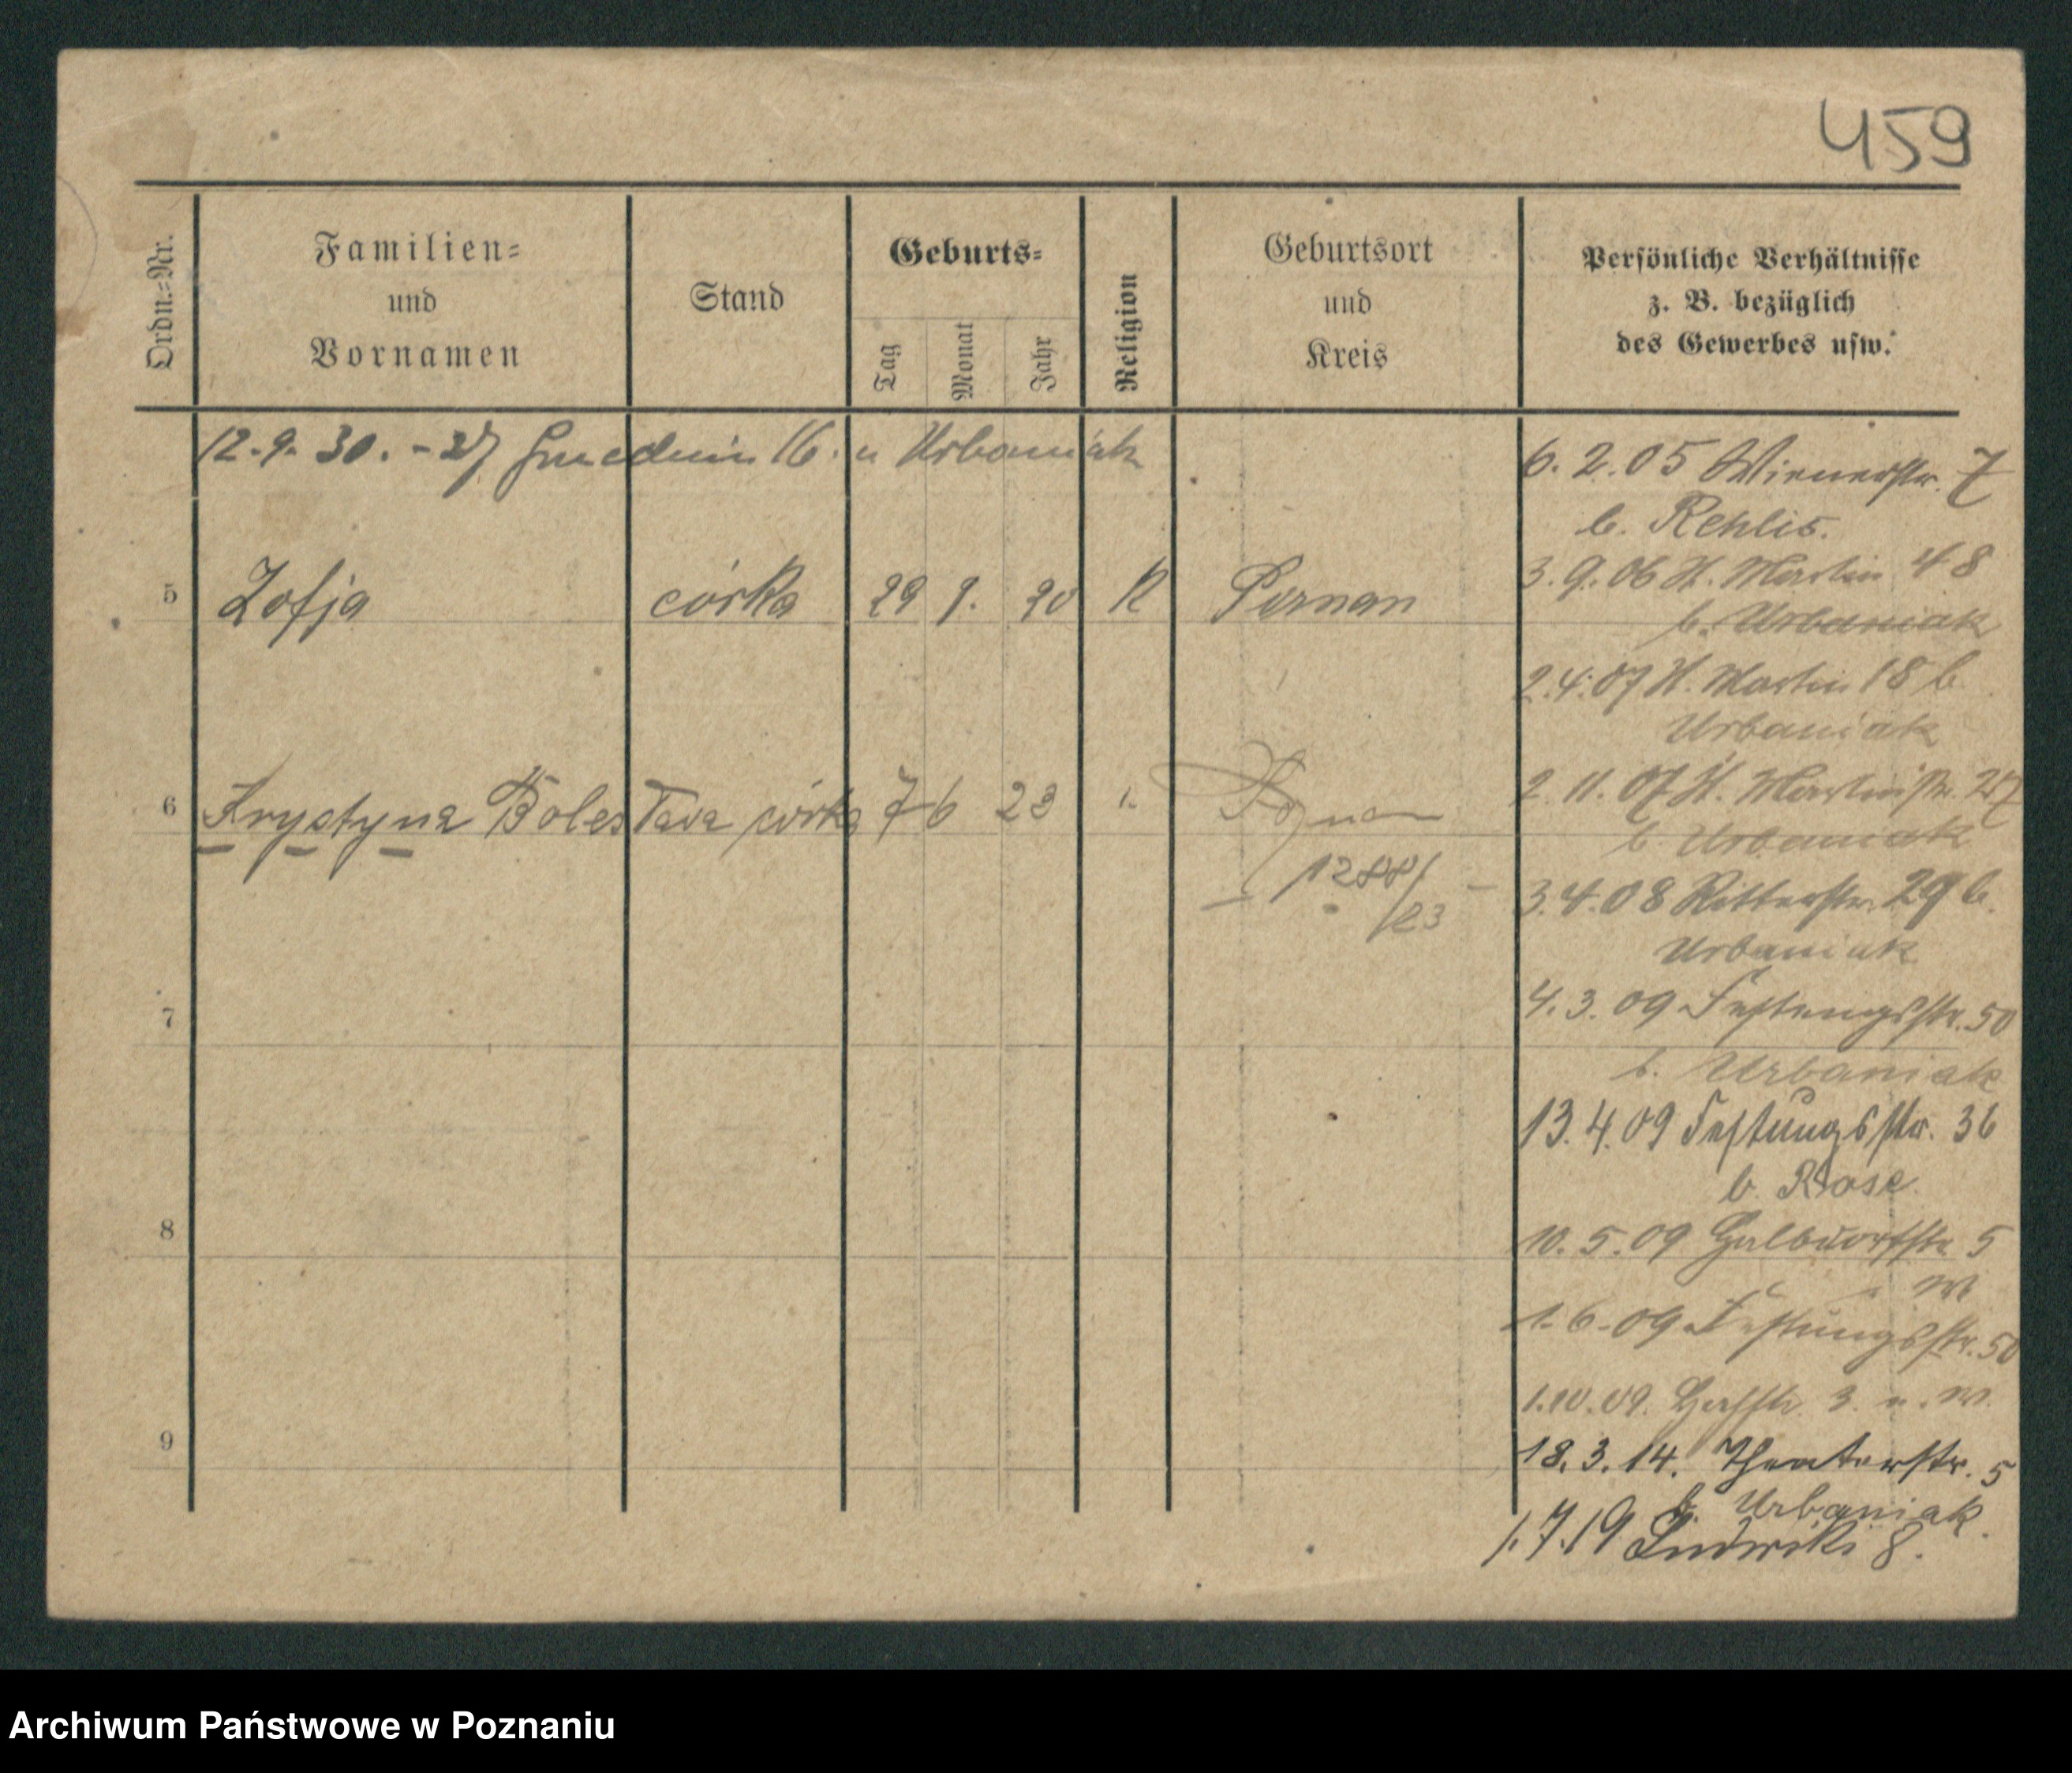 459
Ordn.=Nr.
Familien=
und
Vornamen
Stand
Geburts=
Tag
Monat
Jahr
Religion
Geburtsort
und
Kreis
Persönliche Verhältnisse
z. B. bezüglich
des Gewerbes usw.
12.9.30. - 27 16. u Urbaniak
5 Zofja córka 29 9. 20 K Poznan
6 Krystyna Bolesława córka 7 6 23 " Poznan
1288/23
7
8
9
6.2.05 Wienerstr. 7
b. Rehlis.
3.9.06 St. Martin 48
b. Urbaniak
2.4.07 St. Martin 18 b.
Urbaniak
2.11.07 St. Martinstr. 27
b. Urbaniak
3.4.08 Ritterstr. 29 b.
Urbaniak
4.3.09 Festungsstr. 50
b. Urbaniak
13.4.09 Festungsstr. 36
b. Rose
10.5.09 5
1.6.09 Festungsstr. 50
1.10.09. 3. u. W.
18.3.14. Theaterstr. 5
b. Urbaniak.
1.7.19 Ludwiki 8.
Archiwum Państwowe w Poznaniu